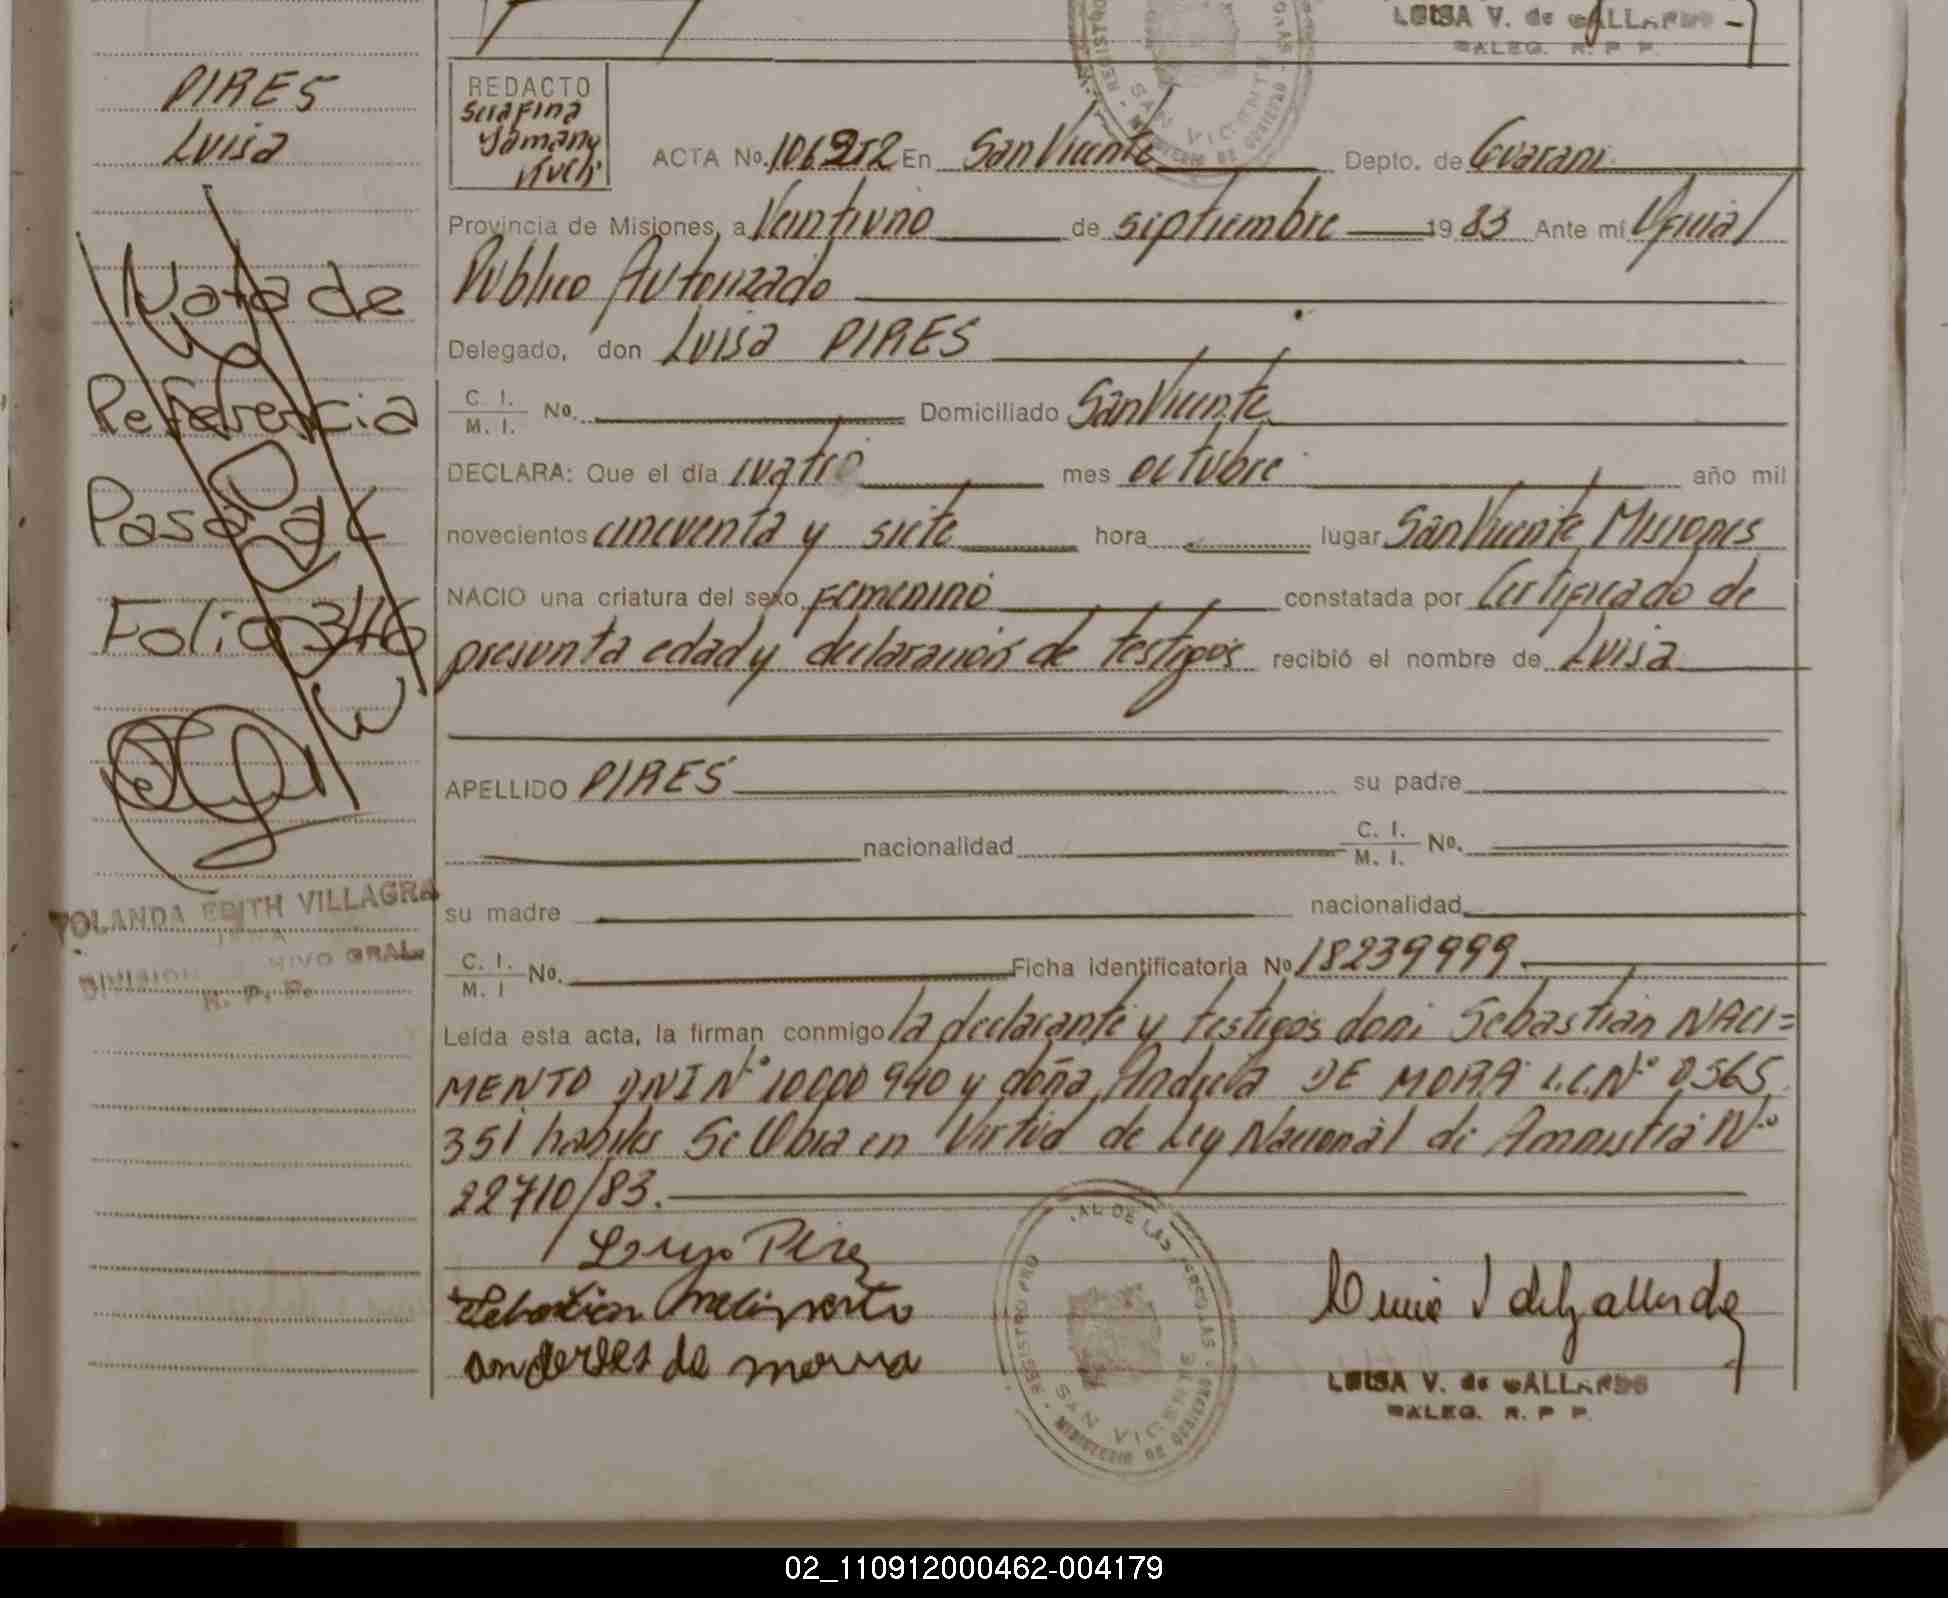 LUISA V. de GALLARDO
DALEG. R. P. P.
PIRES
Luisa
REDACTO
Serafina
ACTA No. 106 2T2 En San Vicente Depto. de Guarani
Provincia de Misiones, a Veintiuno de septiembre 19 83 Ante mí Oficial
Publico Autorizado
Delegado, don Luisa PIRES
C. I.
M. I. No. Domiciliado San Vicente
DECLARA: Que el día cuatro mes octubre año mil
novecientos cincuenta y siete hora lugar San Vicente Misiones
NACIO una criatura del sexo FEMENINO constatada por Certificado de
presunta edad y declaración de testigos recibió el nombre de Luisa
APELLIDO PIRES su padre
nacionalidad C. I. M. I. No.
su madre nacionalidad
C. I. M. I No. Ficha identificatoria No 18239999
Leída esta acta, la firman conmigo la declarante y testigos don: Sebastián NACI=
MENTO DNI N° 10000940 y doña Andreza DE MORA L.C.N° 0565
351 habiles Se Obra en Virtud de Ley Nacional de Amnistia N°
22710/83.
Nota de
Referencia
Pasa al
Folio 346
YOLANDA EDITH VILLAGRA
DIVISION GRAL.
R. P. P.
SAN VICENTE
LUISA V. de GALLARDO
DALEG. R. P. P.
02_110912000462-004179